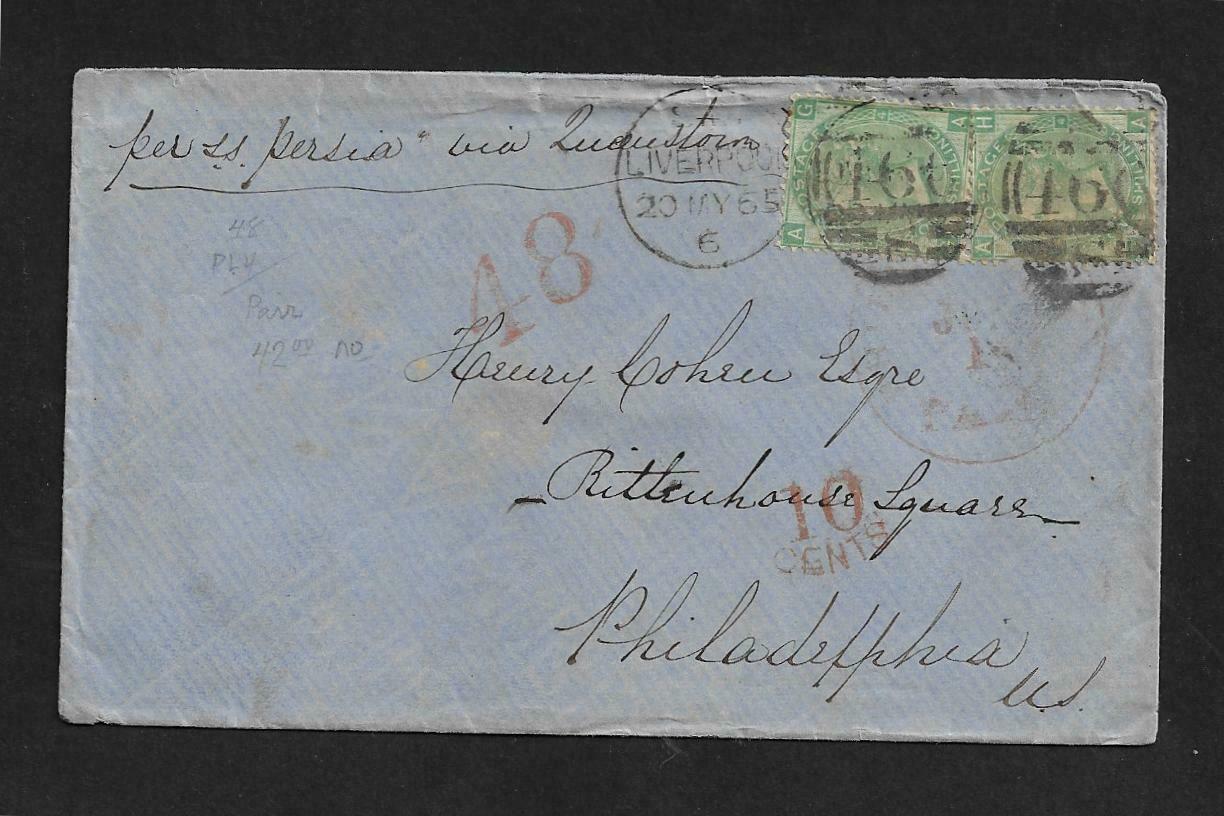 per ss. Persia" via Queenstown
LIVERPOOL
20 MY 65
6
G A
POSTAGE
SHILLING
A
466
H A
POSTAGE
SHILLING
A
466
48
48
PLV
Parr
42 00 no
Henry Cohen Esqre
PAID
Rittenhouse Square
10
CENTS
Philadelphia
U.S.